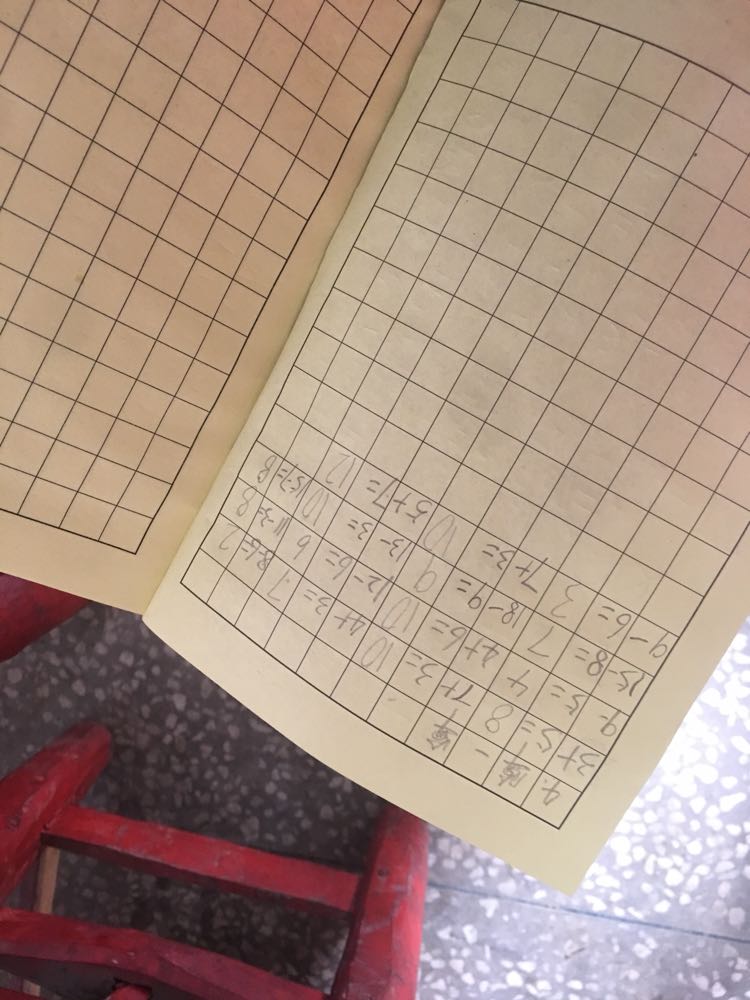 4. 算一算
3+5=8 7+3=10 4+3=7 8-6=2
9-5=4 4+6=10 12-6=6 11-3=8
15-8=7 18-9=9 13-3=10 15-7=8
9-6=3 7+3=10 5+7=12